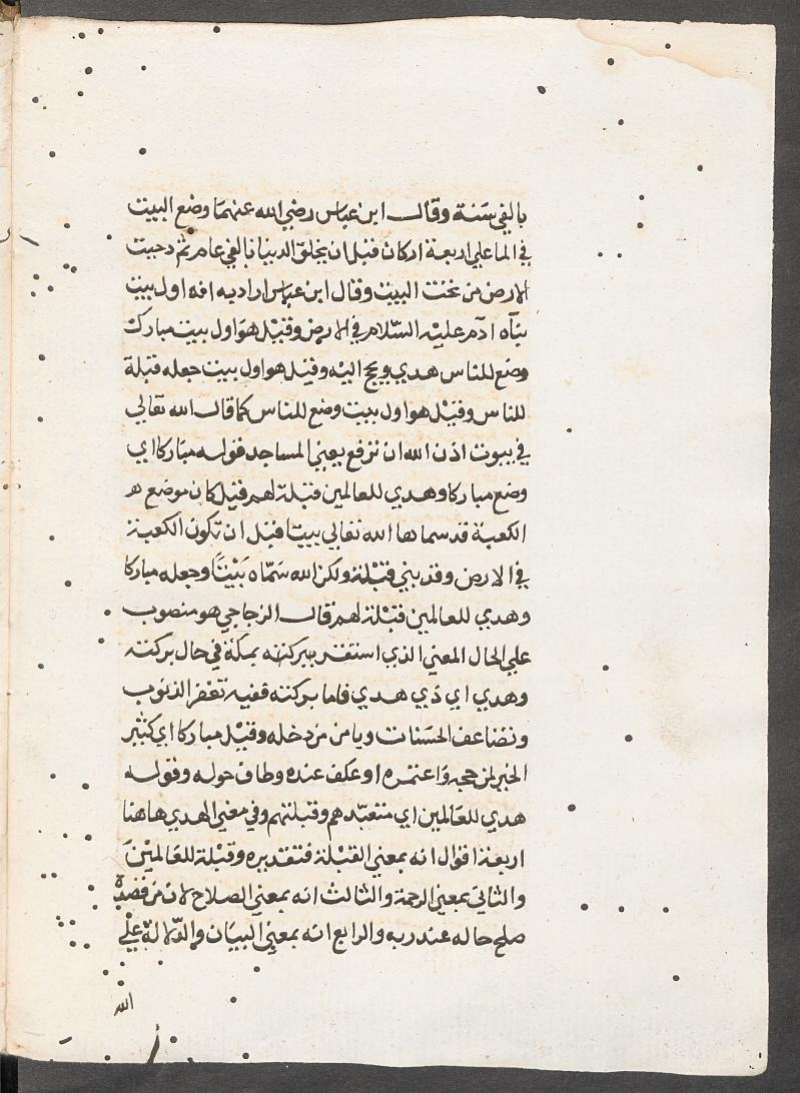 بالفي سنة وقال ابن عباس رضي الله عنهما وضع البيت
في الما علي اربعة اركان قبل ان يخلق الدنيا بالفي عام ثم دحيت
الارض من تحت البيت وقال ابن عباس اراد به انه اول بيت
بناه ادم عليه السلام في الارض وقيل هو اول بيت مبارك
وضع للناس هدي ويحج اليه وقيل هو اول بيت جعله قبلة
للناس وقيل هو اول بيت وضع للناس كما قال الله تعالي
في بيوت اذن الله ان ترفع يعني المساجد قوله مباركا اي
وضع مباركا وهدي للعالمين قبلة لهم قيل كان موضع ه
الكعبة قد سماها الله تعالي بيتا قبل ان تكون الكعبة
في الارض وقد بني قبلة ولكن الله سماه بيتا وجعله مباركا
وهدي للعالمين قبلة لهم قال الزجاجي هو منصوب
علي الحال المعني الذي استقر ببركته بمكة في حال بركته
وهدي اي ذي هدي فاما بركته ففيه تغفر الذنوب
وتضاعف الحسنات ويامن من دخله وقيل مباركا اي كثير
الخير لمن حجه واعتمره او عكف عنده وطاف حوله وقوله
هدي للعالمين اي متعبدهم وقبلتهم وفي معني الهدي هاهنا
اربعة اقوال انه بمعني القبلة فتقديره وقبلة للعالمين
والثاني بمعني الرحمة والثالث انه بمعني الصلاح لان من قصده
صلح حاله عند ربه والرابع انه بمعني البيان والدلالة علي
الله